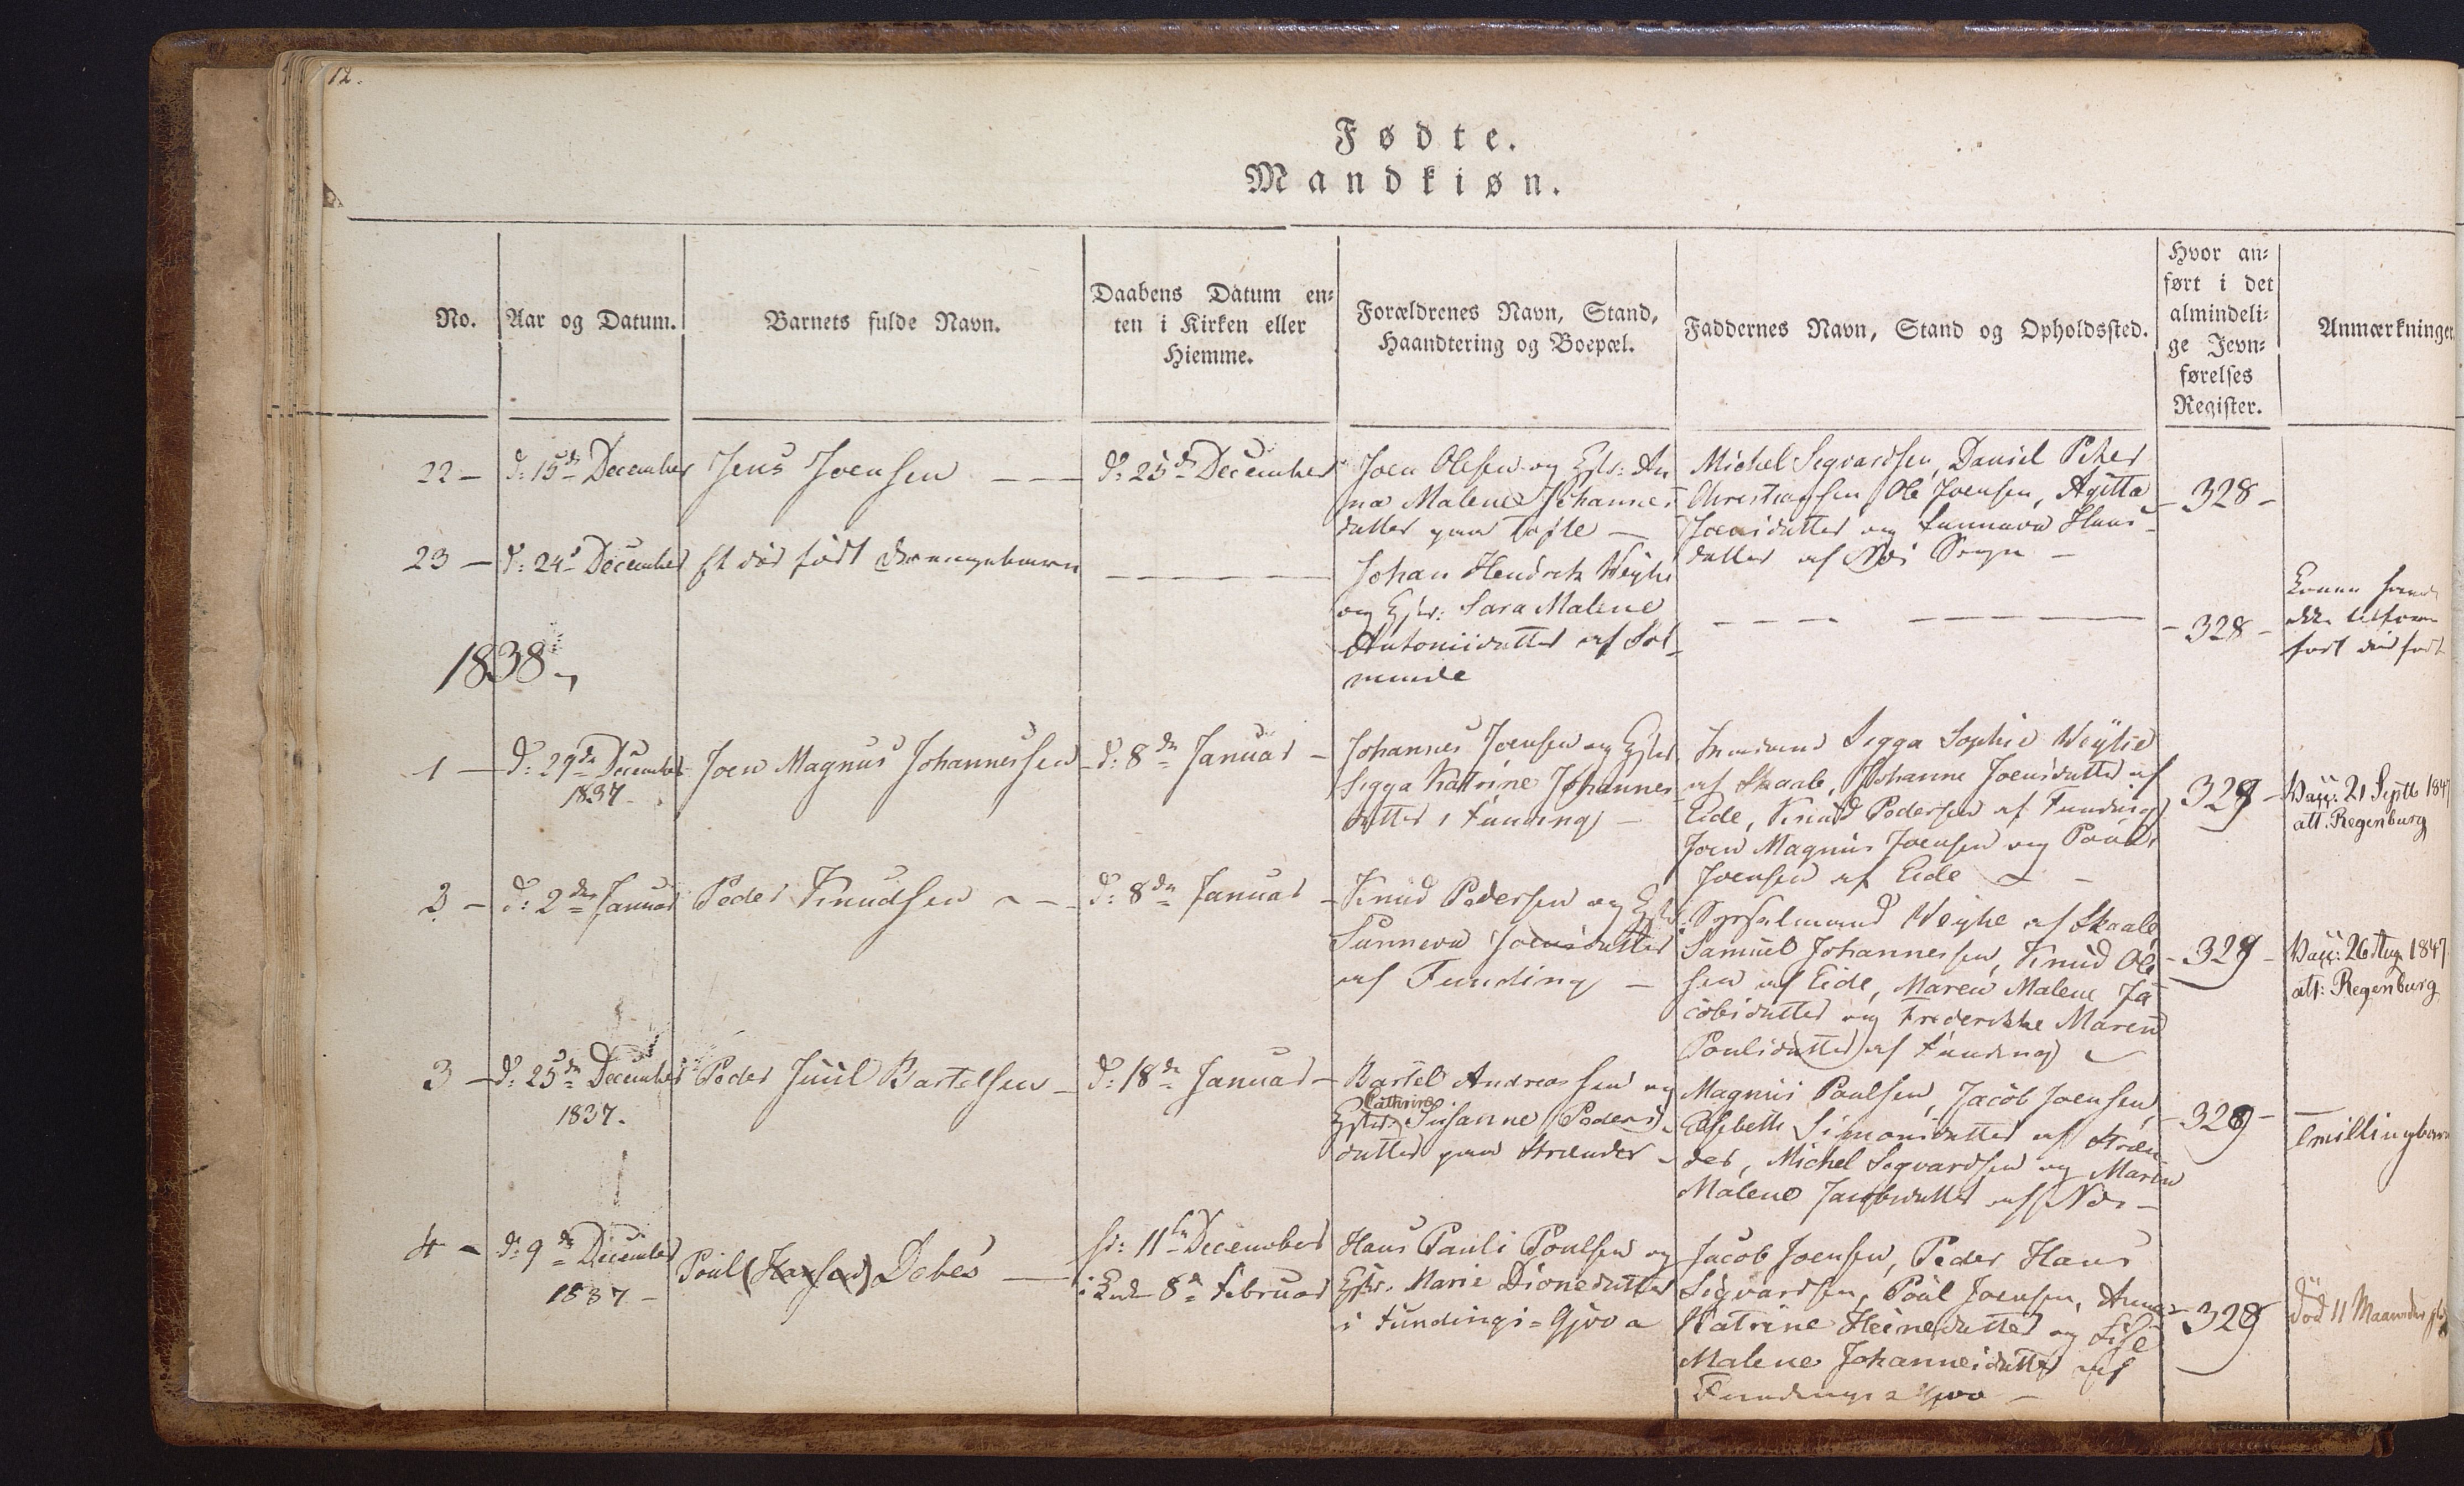 12.
Fødte.
Mandkiøn.
No.
Aar og Datum.
Barnets fulde Navn.
Daabens Datum en=
ten i Kirken eller
Hiemme.
Forældrenes Navn, Stand,
Haandtering og Boepæl.
Faddernes Navn, Stand og Opholdssted.
Hvor an=
ført i det
almindeli=
ge Jevn=
førelses
Register.
Anmærkninger
22 —
d: 15de December
Jens Joensen — — —
d: 25de December
Joen Olesen og Hstr: An
na Malene Johannes
datter paa Tofte —
Michel Segvardsen, Daniel Peter
Christiansen, Ole Joensen, Agitta
Joensdatter og Sunneva Hans
datter af Næs Sogn —
— 328 —
23 —
d: 24de December
Et død født drengebarn
Johan Hendrik Weyhe
og Hstr: Sara Malene
Antoniidatter af Sel
munde
— 328 —
1838
1 —
d: 29de December
1837 —
Joen Magnus Johannessen
d: 8de Januar —
Johannes Joensen og Hstr
Sigga Katrine Johannes
datter i Funding —
Sigga Sophie Weyhe
af Skaale, Johanne Joensdatter af
Eide, Knud Pedersen af Funding
Joen Magnus Joensen og Paul
Joensen af Eide —
329 —
Vacc: 21 Septb 1847
att. Regenburg
2 —
d: 2den Januar
Peder Knudsen — —
d: 8de Januar —
Knud Pedersen og Hstr
Sunneva Joensdatter
af Funding —
Sysselmand Weyhe af Skaale
Samuel Johannessen, Knud Ole
sen af Eide, Maren Malene Ja
cobsdatter og Frederikke Maren
Poulsdatter af Funding
— 329 —
Vacc: 26 Aug 1847
att: Regenburg
3 —
d: 25de December
1837.
Peder Juul Bartelsen —
d: 18de Januar —
Bartel Andreassen og
Cathrine
Hstr: Susanne Peders
datter paa Strænder —
Magnus Paulsen, Jacob Joensen,
Elsebeth Simonsdatter af Stræn
der, Michel Segvardsen og Maren
Malene Jacobsdatter af Næs —
— 329 —
Tvillingbarn
4 —
d: 9de December
1837 —
Poul (Hansen) Debes —
11te December
8de Februar
Hans Pauli Poulsen og
Hstr. Marie Dionedatter
i Fundings = Gjov a
Jacob Joensen, Peder Hans
Sigvardsen, Poul Joensen, Anna
Katrine Heinedatter og Lise
Malene Johannesdatter af
Fundings = Gjov —
— 329
død 11 Maaneder gl.